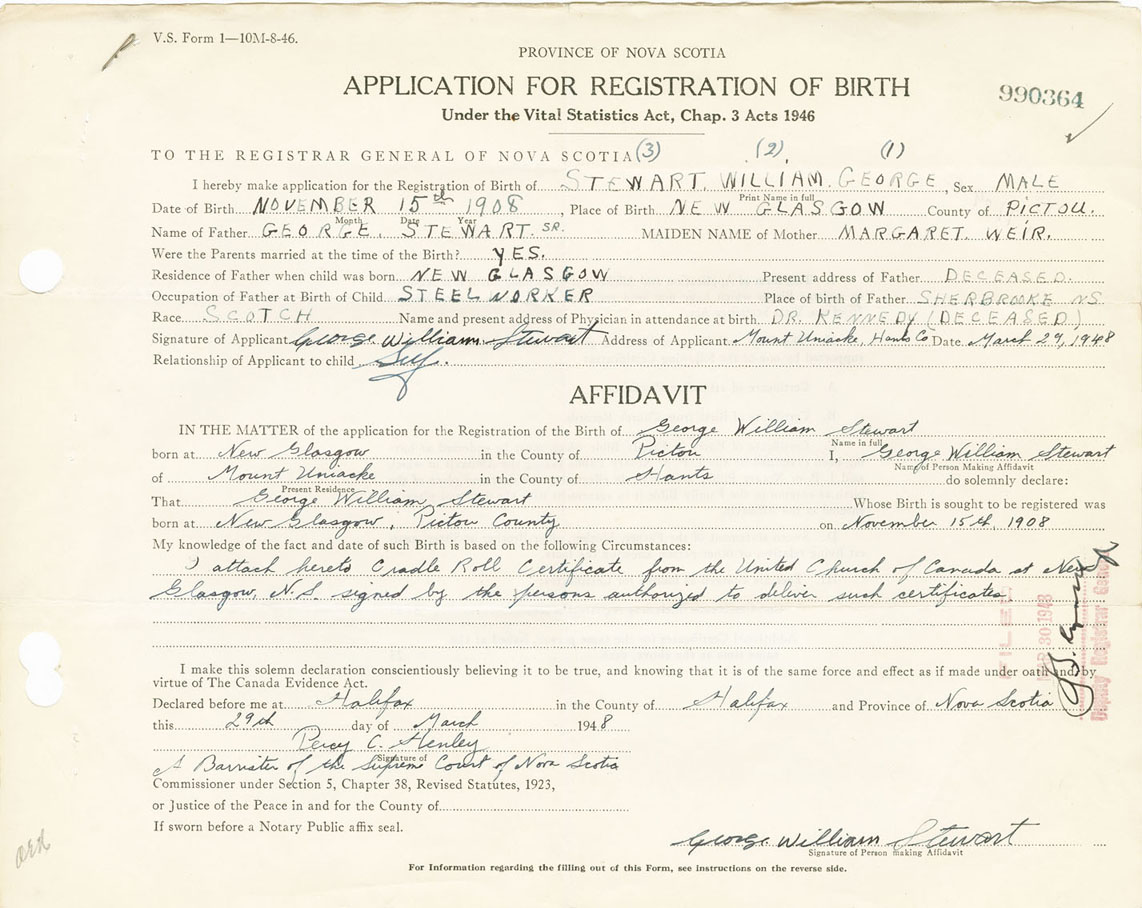 V.S. Form 1—10M-8-46.
PROVINCE OF NOVA SCOTIA
APPLICATION FOR REGISTRATION OF BIRTH
990364
Under the Vital Statistics Act, Chap. 3 Acts 1946
TO THE REGISTRAR GENERAL OF NOVA SCOTIA (3) (2) (1)
I hereby make application for the Registration of Birth of STEWART. WILLIAM. GEORGE, Sex MALE
Print Name in full
Date of Birth NOVEMBER 15th 1908, Place of Birth NEW GLASGOW County of PICTOU.
Month Date Year
Name of Father GEORGE. STEWART. SR. MAIDEN NAME of Mother MARGARET. WEIR.
Were the Parents married at the time of the Birth? YES.
Residence of Father when child was born NEW GLASGOW Present address of Father DECEASED.
Occupation of Father at Birth of Child STEEL WORKER Place of birth of Father SHERBROOKE NS.
Race SCOTCH Name and present address of Physician in attendance at birth DR. KENNEDY (DECEASED)
Signature of Applicant George William Stewart Address of Applicant Mount Uniacke, Hants Co Date March 29, 1948
Relationship of Applicant to child Self.
AFFIDAVIT
IN THE MATTER of the application for the Registration of the Birth of George William Stewart
Name in full
born at New Glasgow in the County of Pictou I, George William Stewart
Name of Person Making Affidavit
of Mount Uniacke in the County of Hants do solemnly declare:
Present Residence
That George William Stewart Whose Birth is sought to be registered was
born at New Glasgow, Pictou County on November 15th, 1908
My knowledge of the fact and date of such Birth is based on the following Circumstances:
I attach hereto Cradle Roll Certificate from the United Church of Canada at New
Glasgow, N.S. signed by the persons authorized to deliver such certificates.
FILED
30 1948
Deputy Registrar General
I make this solemn declaration conscientiously believing it to be true, and knowing that it is of the same force and effect as if made under oath and by
virtue of The Canada Evidence Act.
Declared before me at Halifax in the County of Halifax and Province of Nova Scotia
this 29th day of March 1948
Percy C. Henley
Signature of
A Barrister of the Supreme Court of Nova Scotia
Commissioner under Section 5, Chapter 38, Revised Statutes, 1923,
or Justice of the Peace in and for the County of
If sworn before a Notary Public affix seal.
George William Stewart
Signature of Person making Affidavit
For Information regarding the filling out of this Form, see instructions on the reverse side.